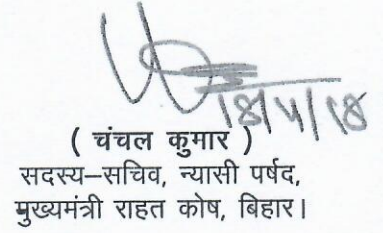 18/4/18
( चंचल कुमार )
सदस्य–सचिव, न्यासी पर्षद,
मुख्यमंत्री राहत कोष, बिहार।